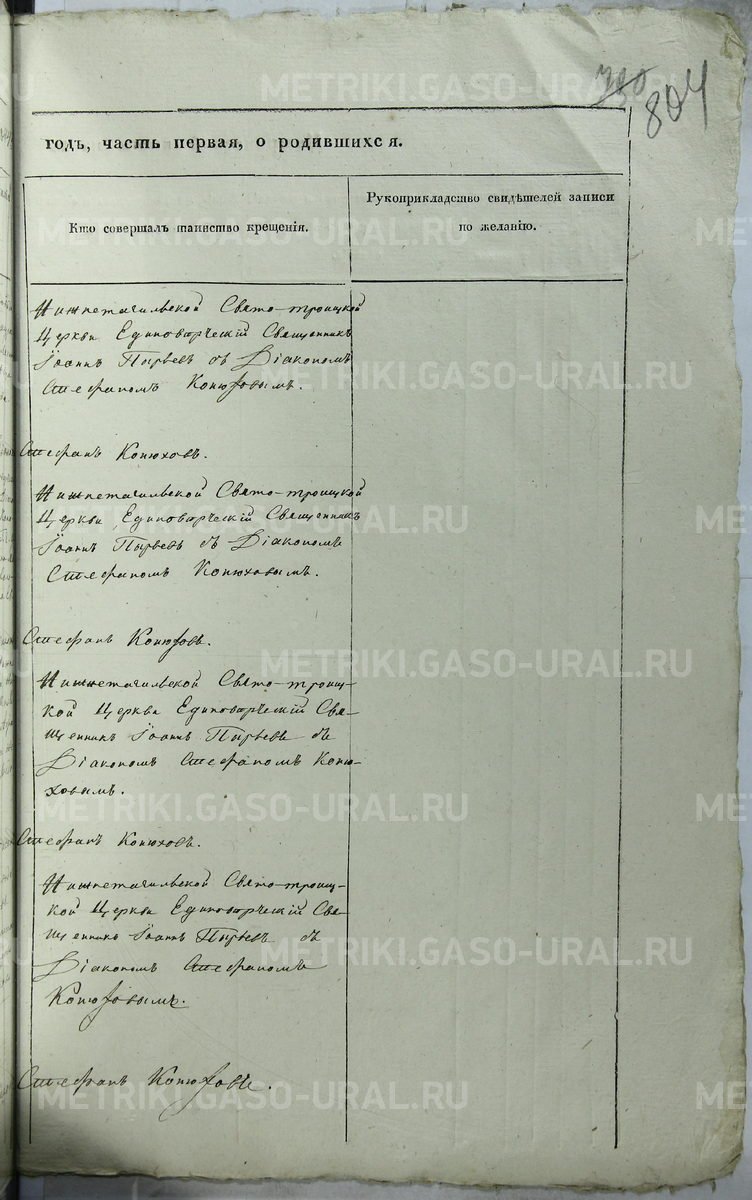 780
804
годъ, часть первая, о родившихся.
Кто совершалъ таинство крещенія.
Рукоприкладство свидѣтелей записи
по желанію.
Нижнетагильской Свято-троицкой
Церкви Единоверческій Священникъ
Іоаннъ Пырьевъ съ Діакономъ
Стефаномъ Конюховымъ.
Стефанъ Конюховъ.
Нижнетагильской Свято-троицкой
Церкви Единоверческій Священникъ
Іоаннъ Пырьевъ съ Діакономъ
Стефаномъ Конюховымъ.
Стефанъ Конюховъ.
Нижнетагильской Свято-троиц-
кой Церкви Единоверческій Свя-
щенникъ Іоаннъ Пырьевъ съ
Діакономъ Стефаномъ Коню-
ховымъ.
Стефанъ Конюховъ.
Нижнетагильской Свято-троиц-
кой Церкви Единоверческій Свя-
щенникъ Іоаннъ Пырьевъ съ
Діакономъ Стефаномъ
Конюховымъ.
Стефанъ Конюховъ.
METRIKI.GASO-URAL.RU